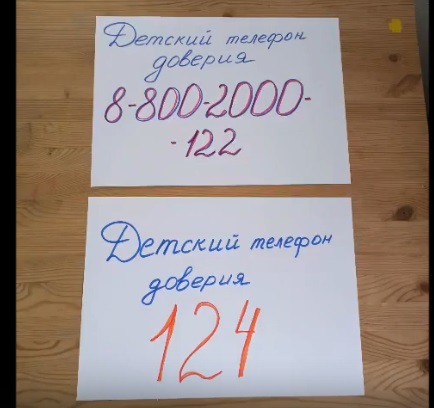 Детский телефон
доверия
8-800-2000-
-122
Детский телефон
доверия
124